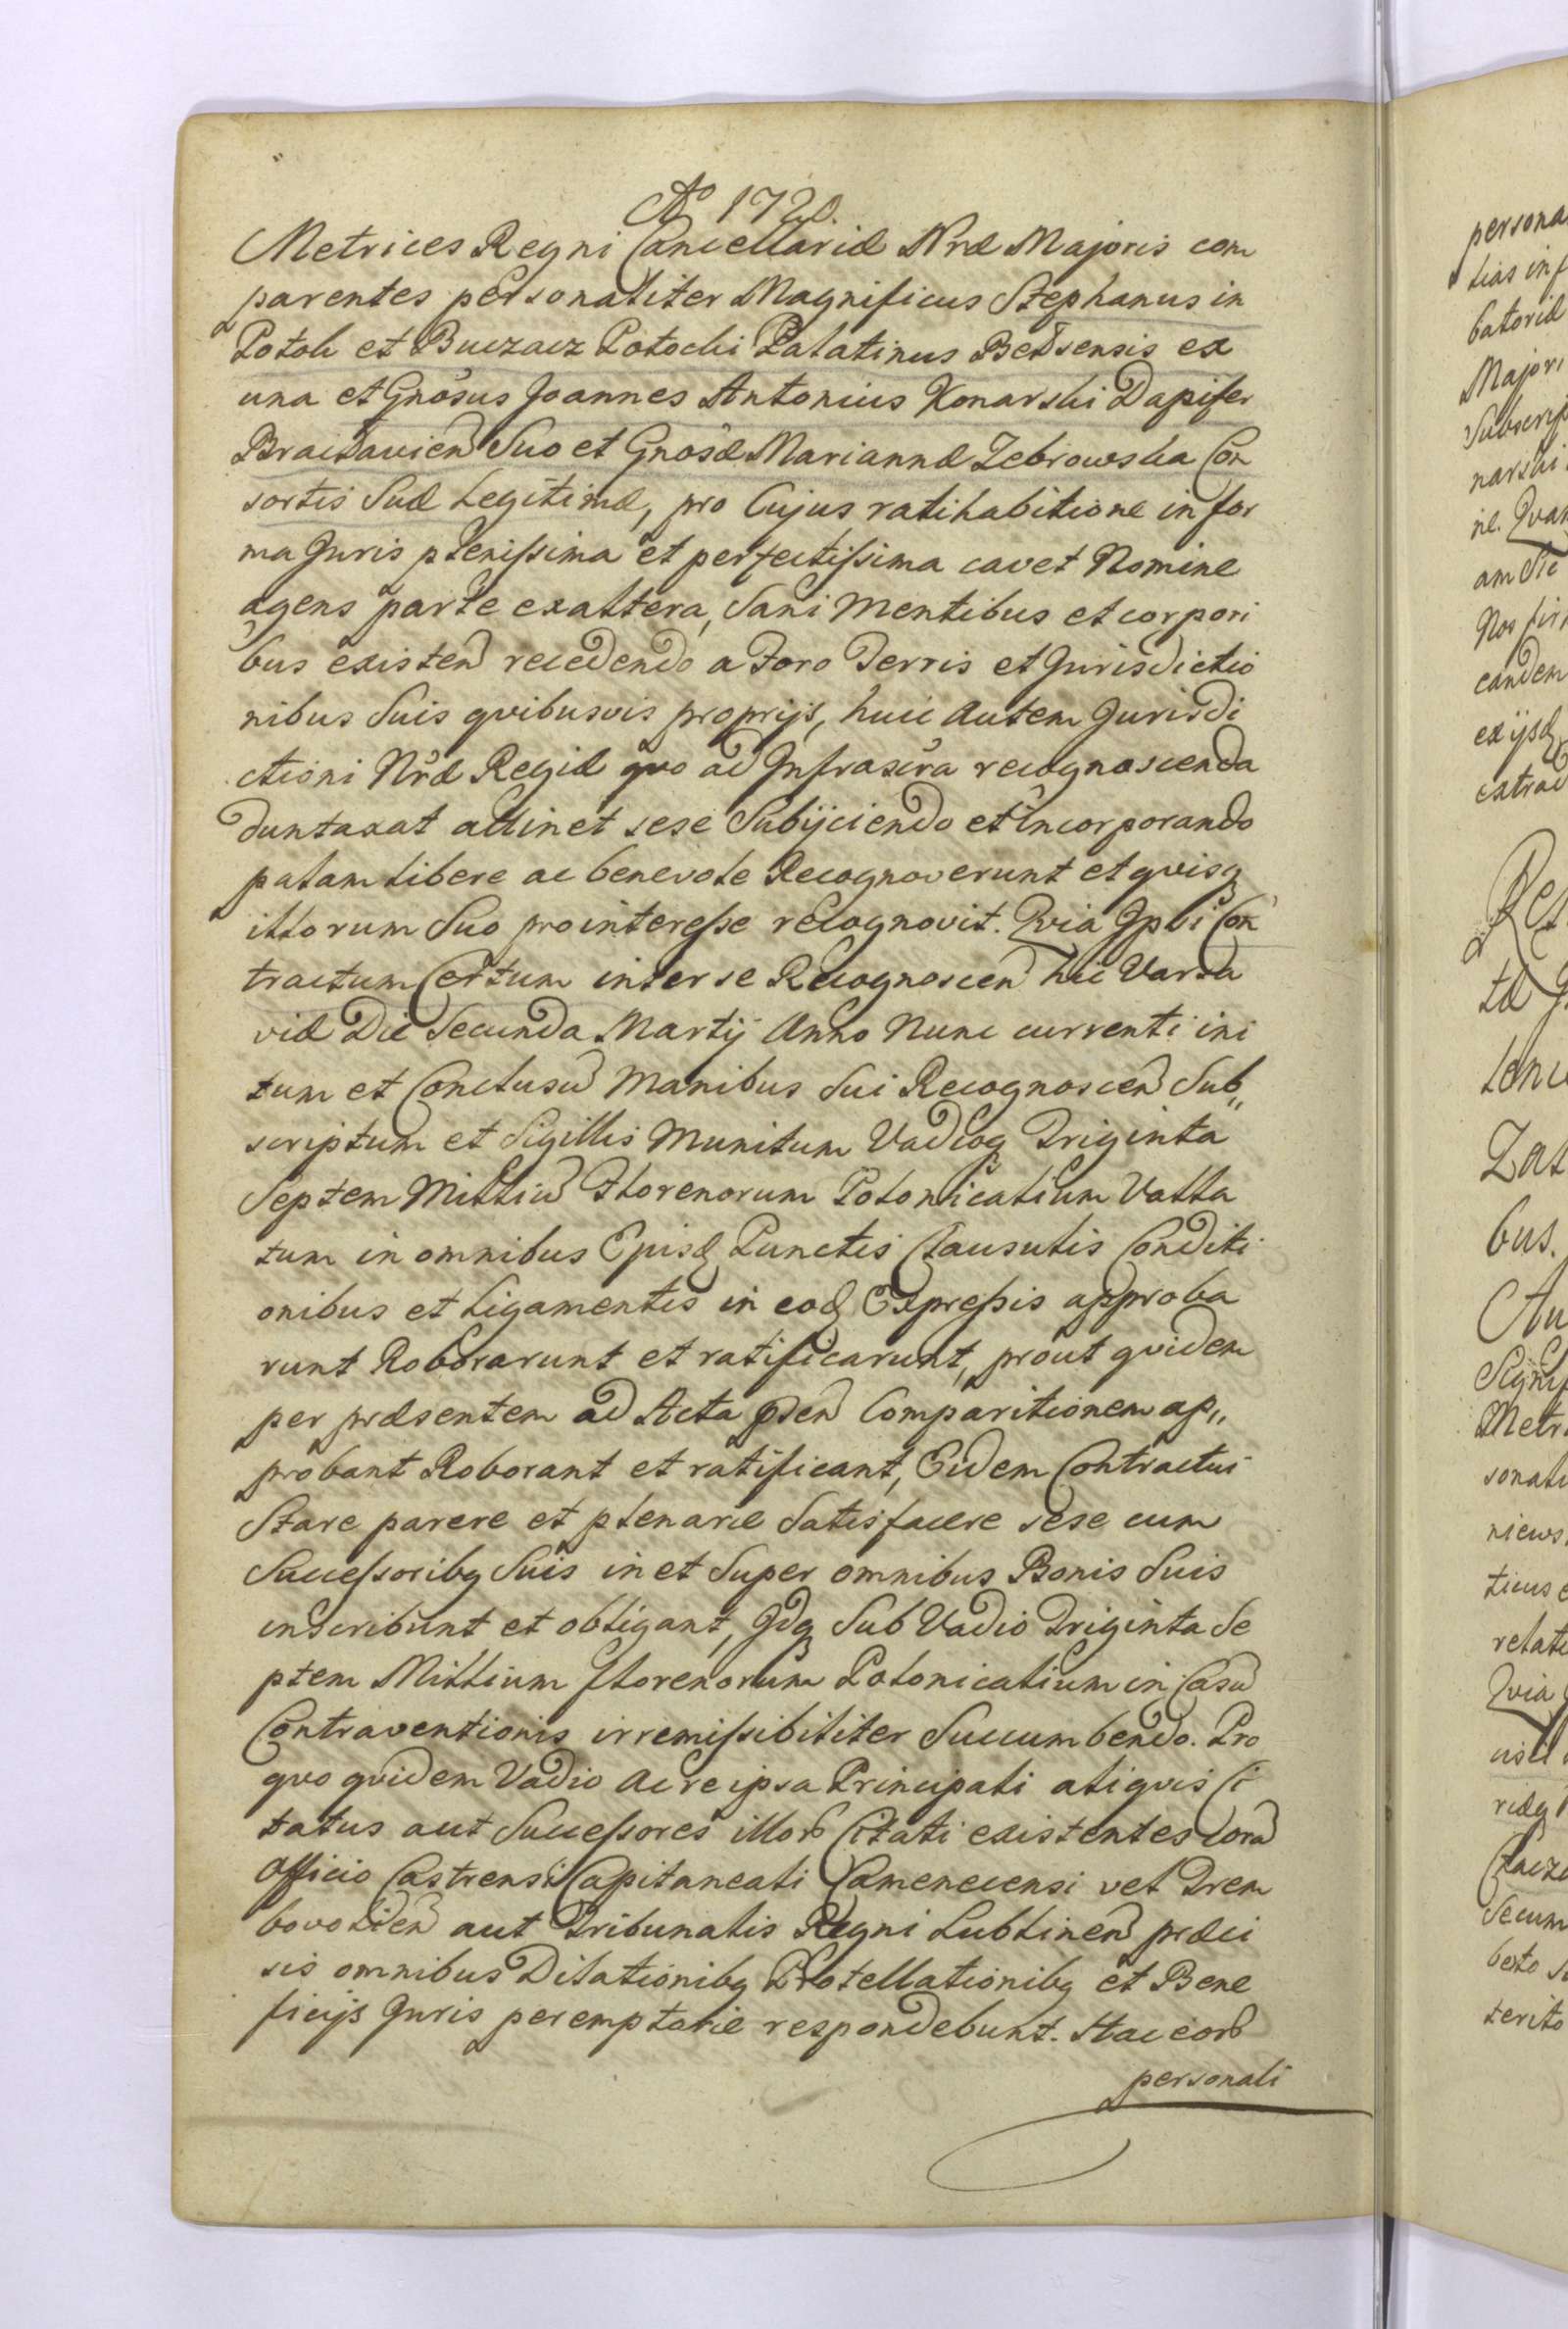 Aº 1720.
Metrices Regni Cancellariæ Nræ Majoris com
parentes personaliter Magnificus Stephanus in
Potok et Buczacz Potocki Palatinus Belsensis ex
una et Gnosus Joannes Antonius Konarski Dapifer
Braclavien Suo et Gnosæ Mariannæ Zebrowska Con
sortis Suæ Legitimæ, pro Cujus ratihabitione in for
ma Juris plenissima et perfectissima cavet Nomine
agens parte ex altera, Sani Mentibus et corpori
bus existen recedendo a Foro Terris et Jurisdictio
nibus Suis qvibusvis proprijs, huic Autem Jurisdi
ctioni Nræ Regiæ qvo ad Infrascra recognoscenda
duntaxat attinet sese Subijciendo et incorporando
palam libere ac benevole Recognoverunt et qvisq
illorum Suo pro interesse recognovit. Qvia Ipsi Con
tractum Certum inter se Recognoscen hic Varsa
viæ Die Secunda Martij Anno Nunc currenti ini
tum et Conclusu Manibus Sui Recognoscen Sub"
scriptum et Sigillis Munitum Vadioq Triginta
Septem Milliu Florenorum Polonicalium Valla
tum in omnibus Ejusd Punctis Clausulis Conditi
onibus et Ligamentis in eod Expressis approba
runt Roborarunt et ratificarunt, prout qvidem
per præsentem ad Acta psen Comparitionem ap"
probant Roborant et ratificant, Eidem Contractui
Stare parere et plenarie Satisfacere sese cum
Successoribq Suis in et Super omnibus Bonis Suis
inscribunt et obligant, Idq Sub Vadio Triginta Se
ptem Millium florenorum Polonicalium in Casu
Contraventionis irremissibiliter Succumbendo. Pro
qvo qvidem Vadio Ac re ipsa Principali aliqvis Ci
tatus aut Successores illor Citati existentes Cora
Officio Castrensi Capitaneali Camenecensi vel Trem
bovolien aut Tribunalis Regni Lublinen præci
sis omnibus Dilationibq Protellationibq et Bene
ficijs Juris peremptorie respondebunt. Hac eor
personali